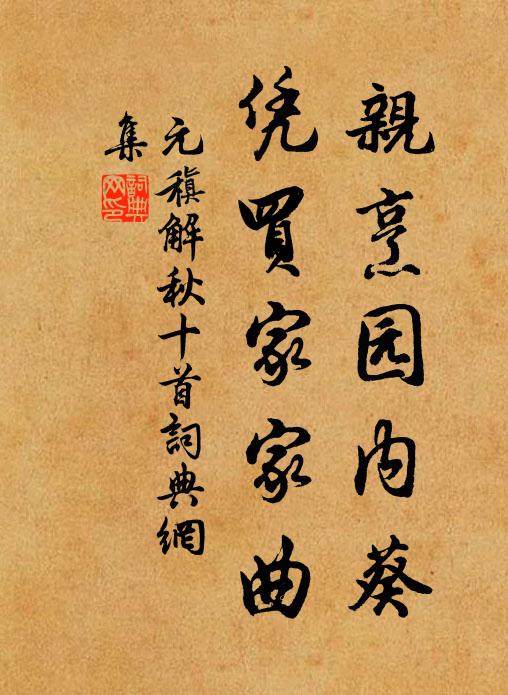 親烹园内葵
凭買家家曲
元稹解秋十首詞典網
集
詞典网印